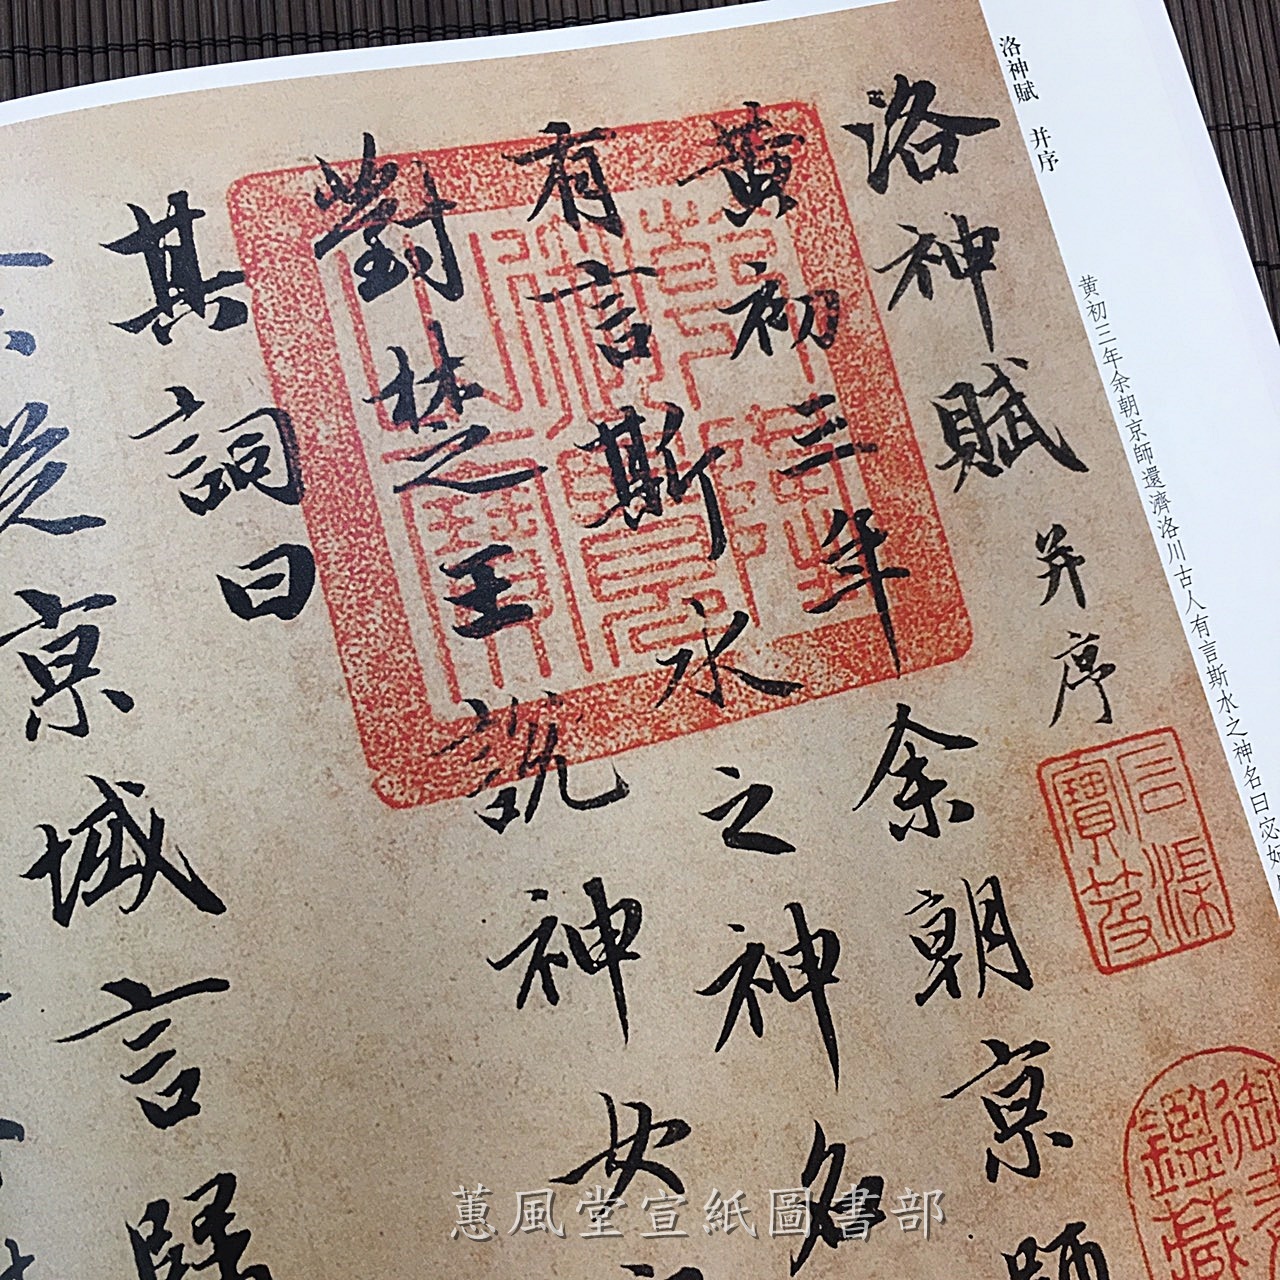 洛神賦 并序
黄初三年余朝京師還濟洛川古人有言斯水之神名曰宓妃
洛神賦并序
黄初三年余朝京師
有言斯水之神名
對楚之王說神女
其詞曰
京域言歸
石渠寶笈
鑑藏
蕙風堂宣紙圖書部